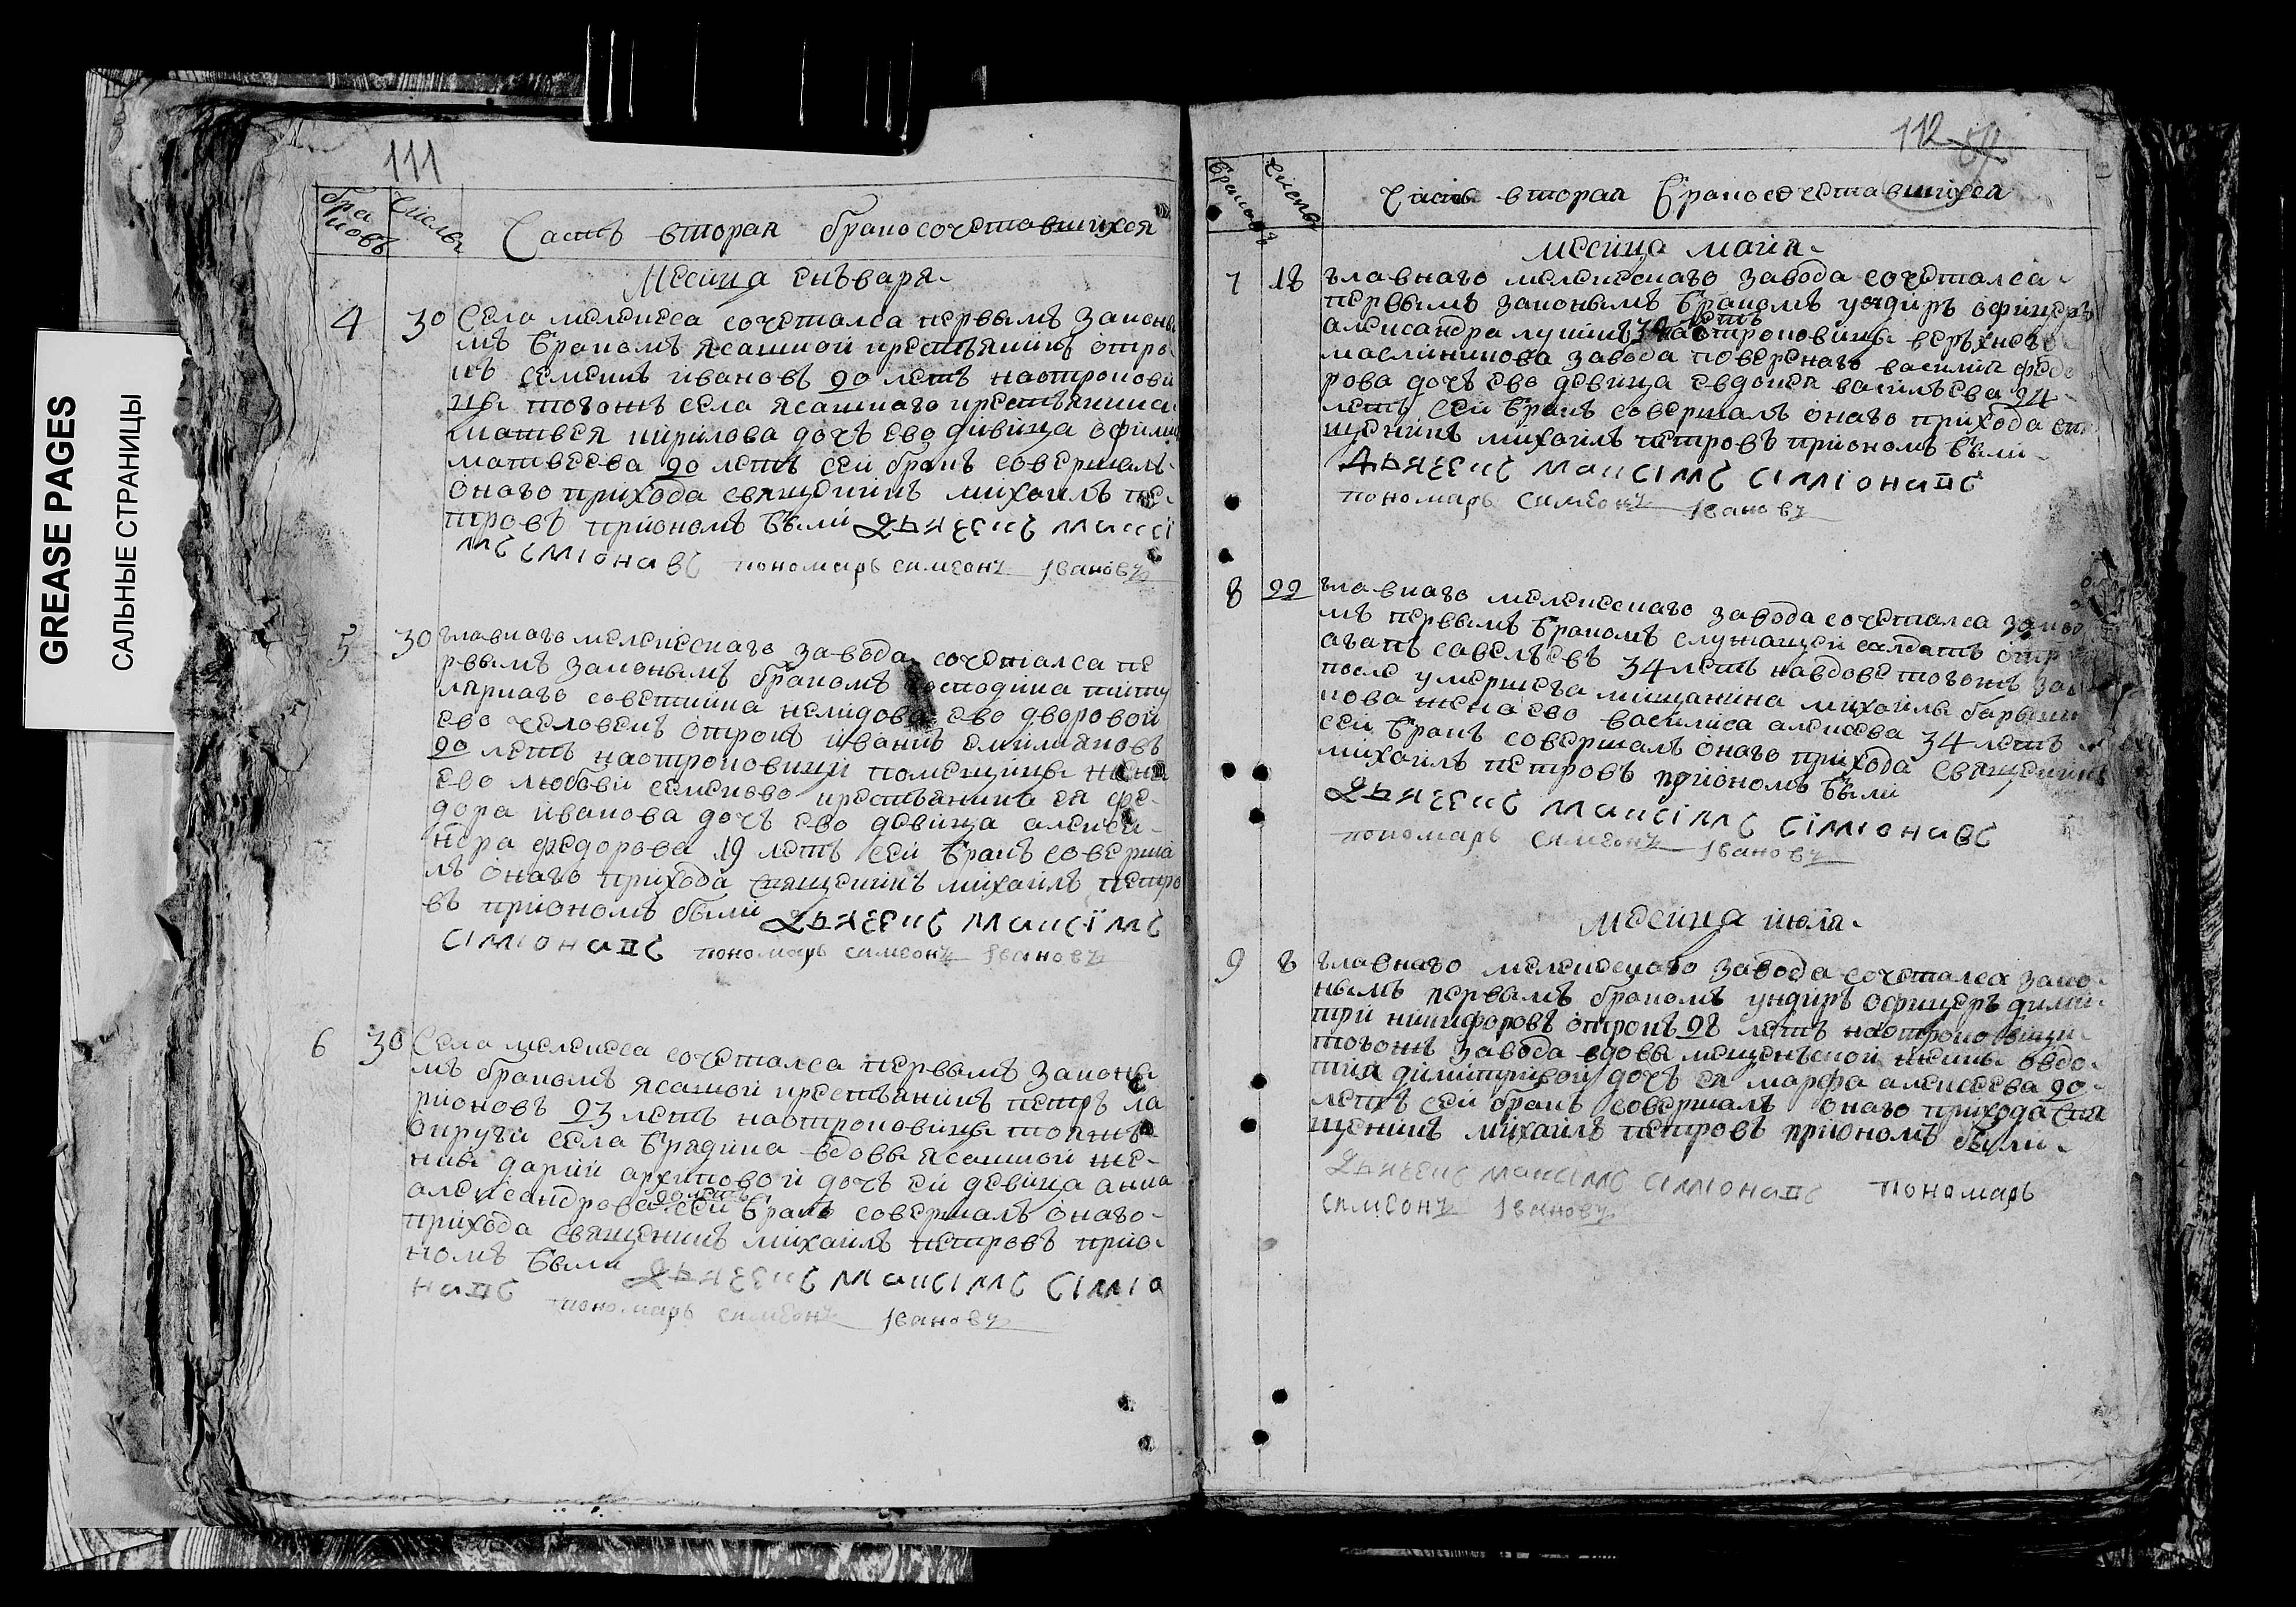 GREASE PAGES
САЛЬНЫЕ СТРАНИЦЫ
111
бра
ковъ
числы
Часть вторая бракосочетавшихся
Месяца енъваря
4 30 Села мелекеса сочеталса первымъ законы
мъ бракомъ ясашной крестьянинъ отро
къ семенъ ивановъ 20 летъ наотрокови
цы тогожъ села ясашнаго крестьянина
матвея кирилова дочъ ево девица офими
матвеева 20 летъ сей бракъ совершалъ
онаго прихода священикъ михаилъ пе
тровъ приономъ были дьячекъ макси
мъ симионавъ пономарь симеонъ Ивановъ
5 30 главнаго мелекескаго завода сочеталса пе
рвымъ законымъ бракомъ господина титу
лярнаго советника нелидова ево дворовой
ево человекъ отрокъ иванъ емилияновъ
20 летъ наотроковицы помещицы
ево любови семеново крестьянина ея фе
дора иванова дочъ ево девица алекса
федорова 19 летъ сей бракъ соверша
лъ онаго прихода священикъ михаилъ петро
въ приономъ были дьячекъ максимъ
симионавъ пономарь симеонъ Ивановъ
6 30 Села мелекеса сочеталса первымъ законы
мъ бракомъ ясашной крестьянинъ петръ ла
рионовъ 23 летъ наотроковицы тояжъ
округи села брядина вдовы ясашной же
ны дарьи архиповой дочъ ей девица анна
александрова летъ сей бракъ совершалъ онаго
прихода священикъ михаилъ петровъ прио
номъ были дьячекъ максимъ симио
навъ
пономарь симеонъ Ивановъ
112
браковъ
числы
Часть вторая бракосочетавшихся
месяца майя
7 18 главнаго мелекескаго завода сочеталса
первымъ законымъ бракомъ ундиръ офицеръ
александра лукинъ летъ наотроковицы верьхнево
маслиникова завода повереного василия федо
рова дочъ ево девица евдокея василъева 24
летъ сей бракъ совершалъ онаго прихода свя
щеникъ михаилъ петровъ приономъ были
дьячекъ максимъ симионавъ
пономарь симеонъ Ивановъ
8 22 главнаго мелекескаго завода сочеталса законы
мъ первымъ бракомъ служащей салдатъ отр
агапъ савелъевъ 34 летъ навдове тогожъ зав
после умершева мищанина михаилы
кова жена ево василиса алексеева 34 летъ
сей бракъ совершалъ онаго прихода священикъ
михаилъ петровъ приономъ были
дьячекъ максимъ симионавъ
пономарь симеонъ Ивановъ
Месяца июля
9 8 главнаго мелекескаго завода сочеталса зако
нымъ первымъ бракомъ ундиръ офицеръ дими
три никифоровъ отрокъ 28 летъ наотроковицы
тогожъ завода вдовы мещенъской жены овдо
тия димитриевой дочъ ея марфа алексеева 20
летъ сей бракъ совершалъ онаго прихода свя
щеникъ михаилъ петровъ приономъ были
дьячекъ максимъ симионавъ пономарь
симеонъ Ивановъ